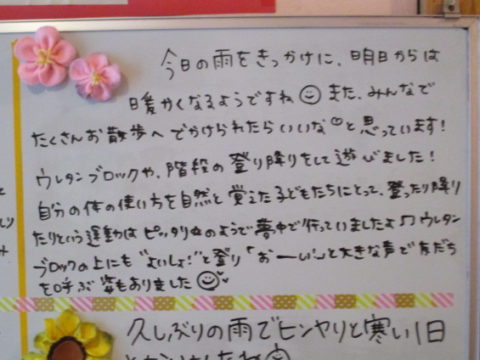 今日の雨をきっかけに、明日からは
暖かくなるようですね☺ また、みんなで
たくさんお散歩へでかけられたらいいな と思っています!
ウレタンブロックや、階段の登り降りをして遊びました!
自分の体の使い方を自然と覚えた子どもたちにとって、登ったり降り
たりという運動はピッタリのようで夢中で行っていましたよ♫ ウレタン
ブロックの上にも"よいしょ!"と登り「おーい!」と大きな声で友だち
を呼ぶ姿もありました☺
久しぶりの雨でヒンヤリと寒い1日